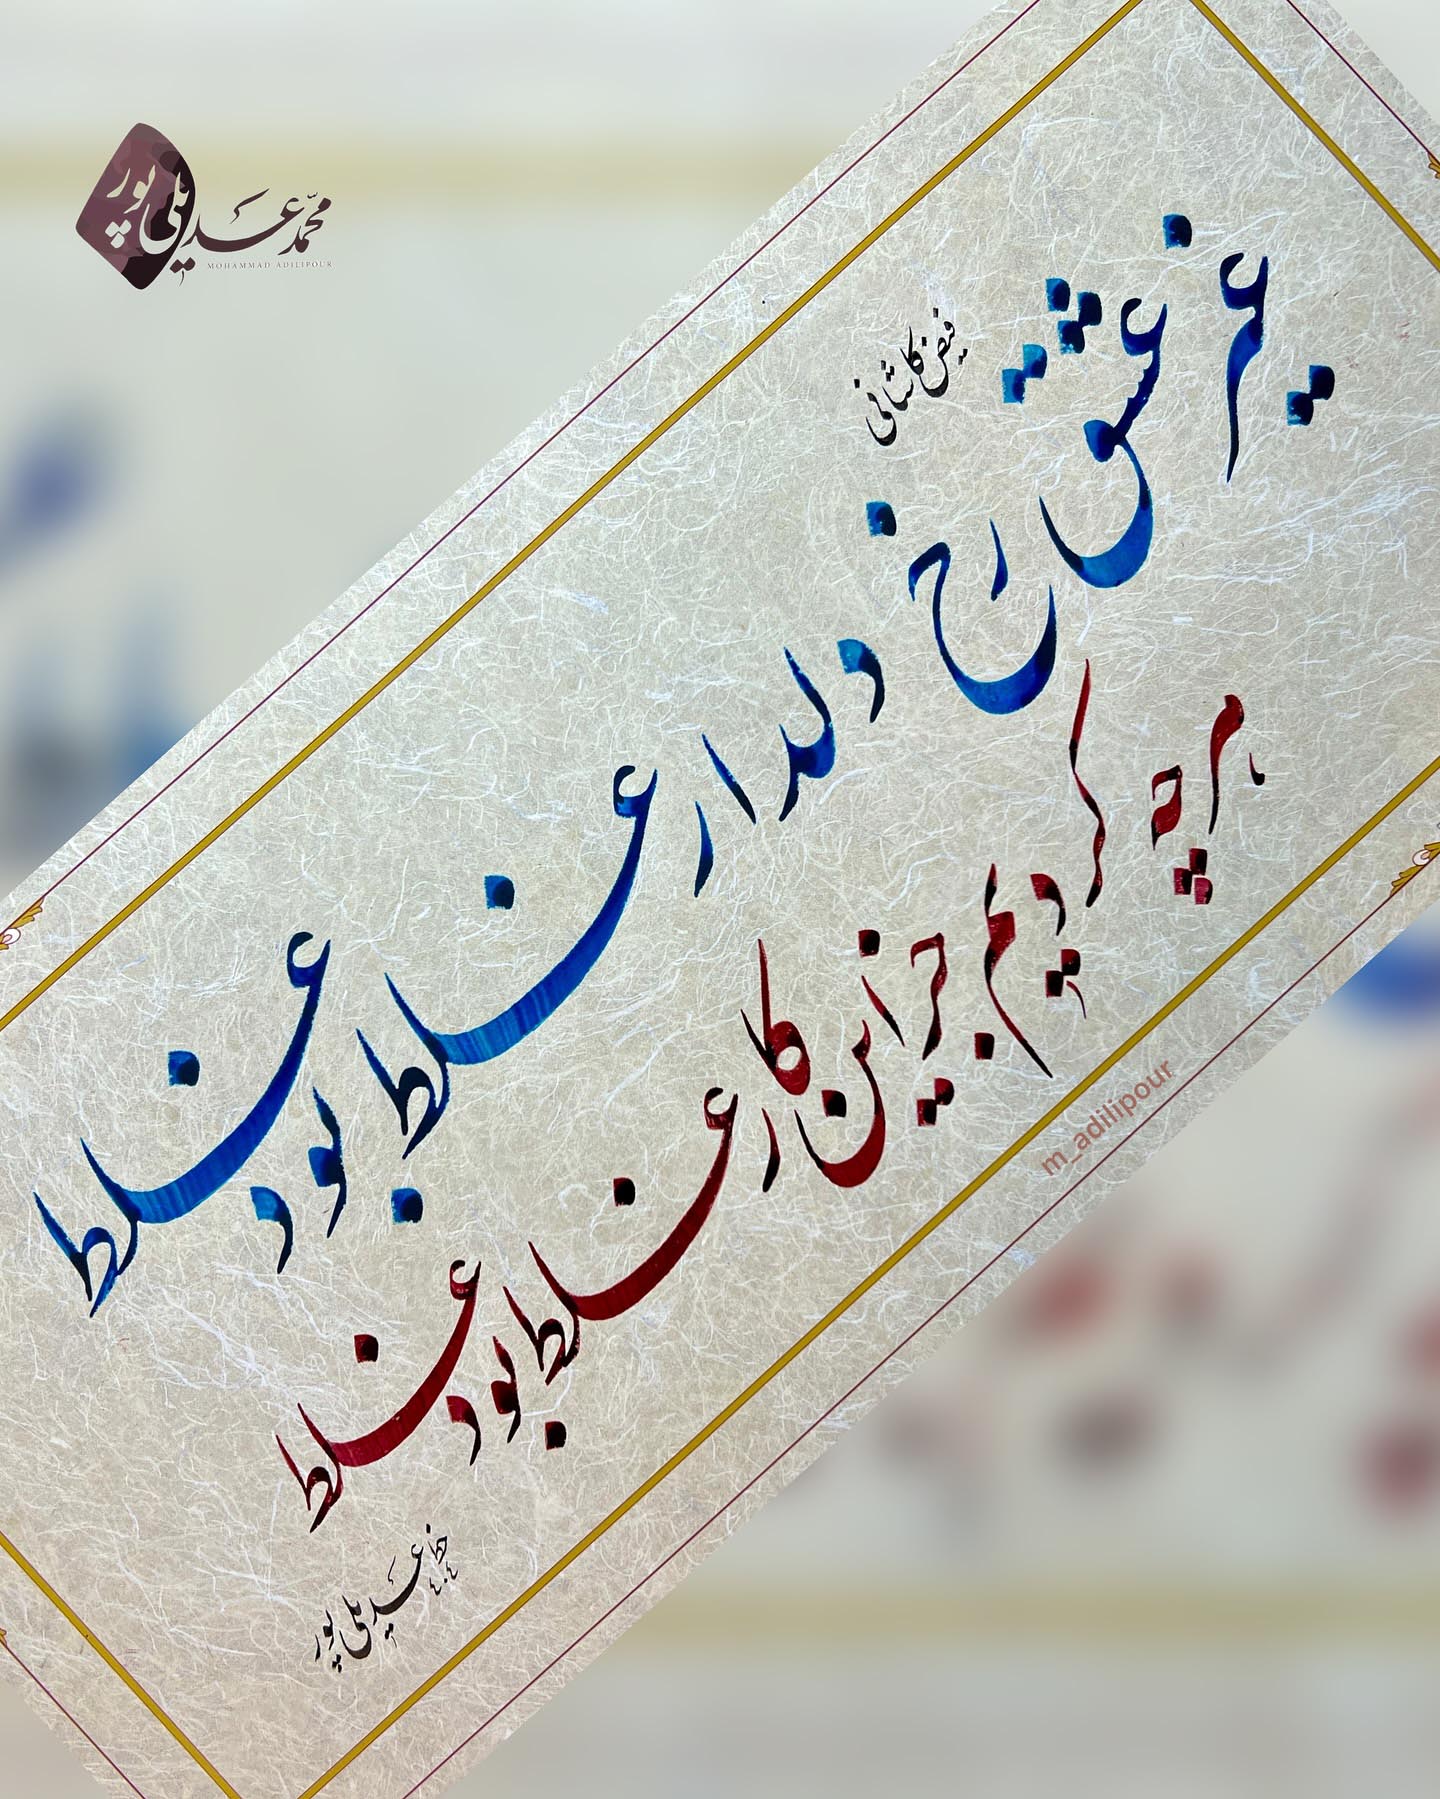 محمد عدیلی پور
MOHAMMAD ADILIPOUR
غیر عشق رخ دلدار غلط بود غلط
فیض کاشانی
هر چه کردیم جز این کار غلط بود غلط
m_adilipour
خط عدیلی پور
۴۰۴